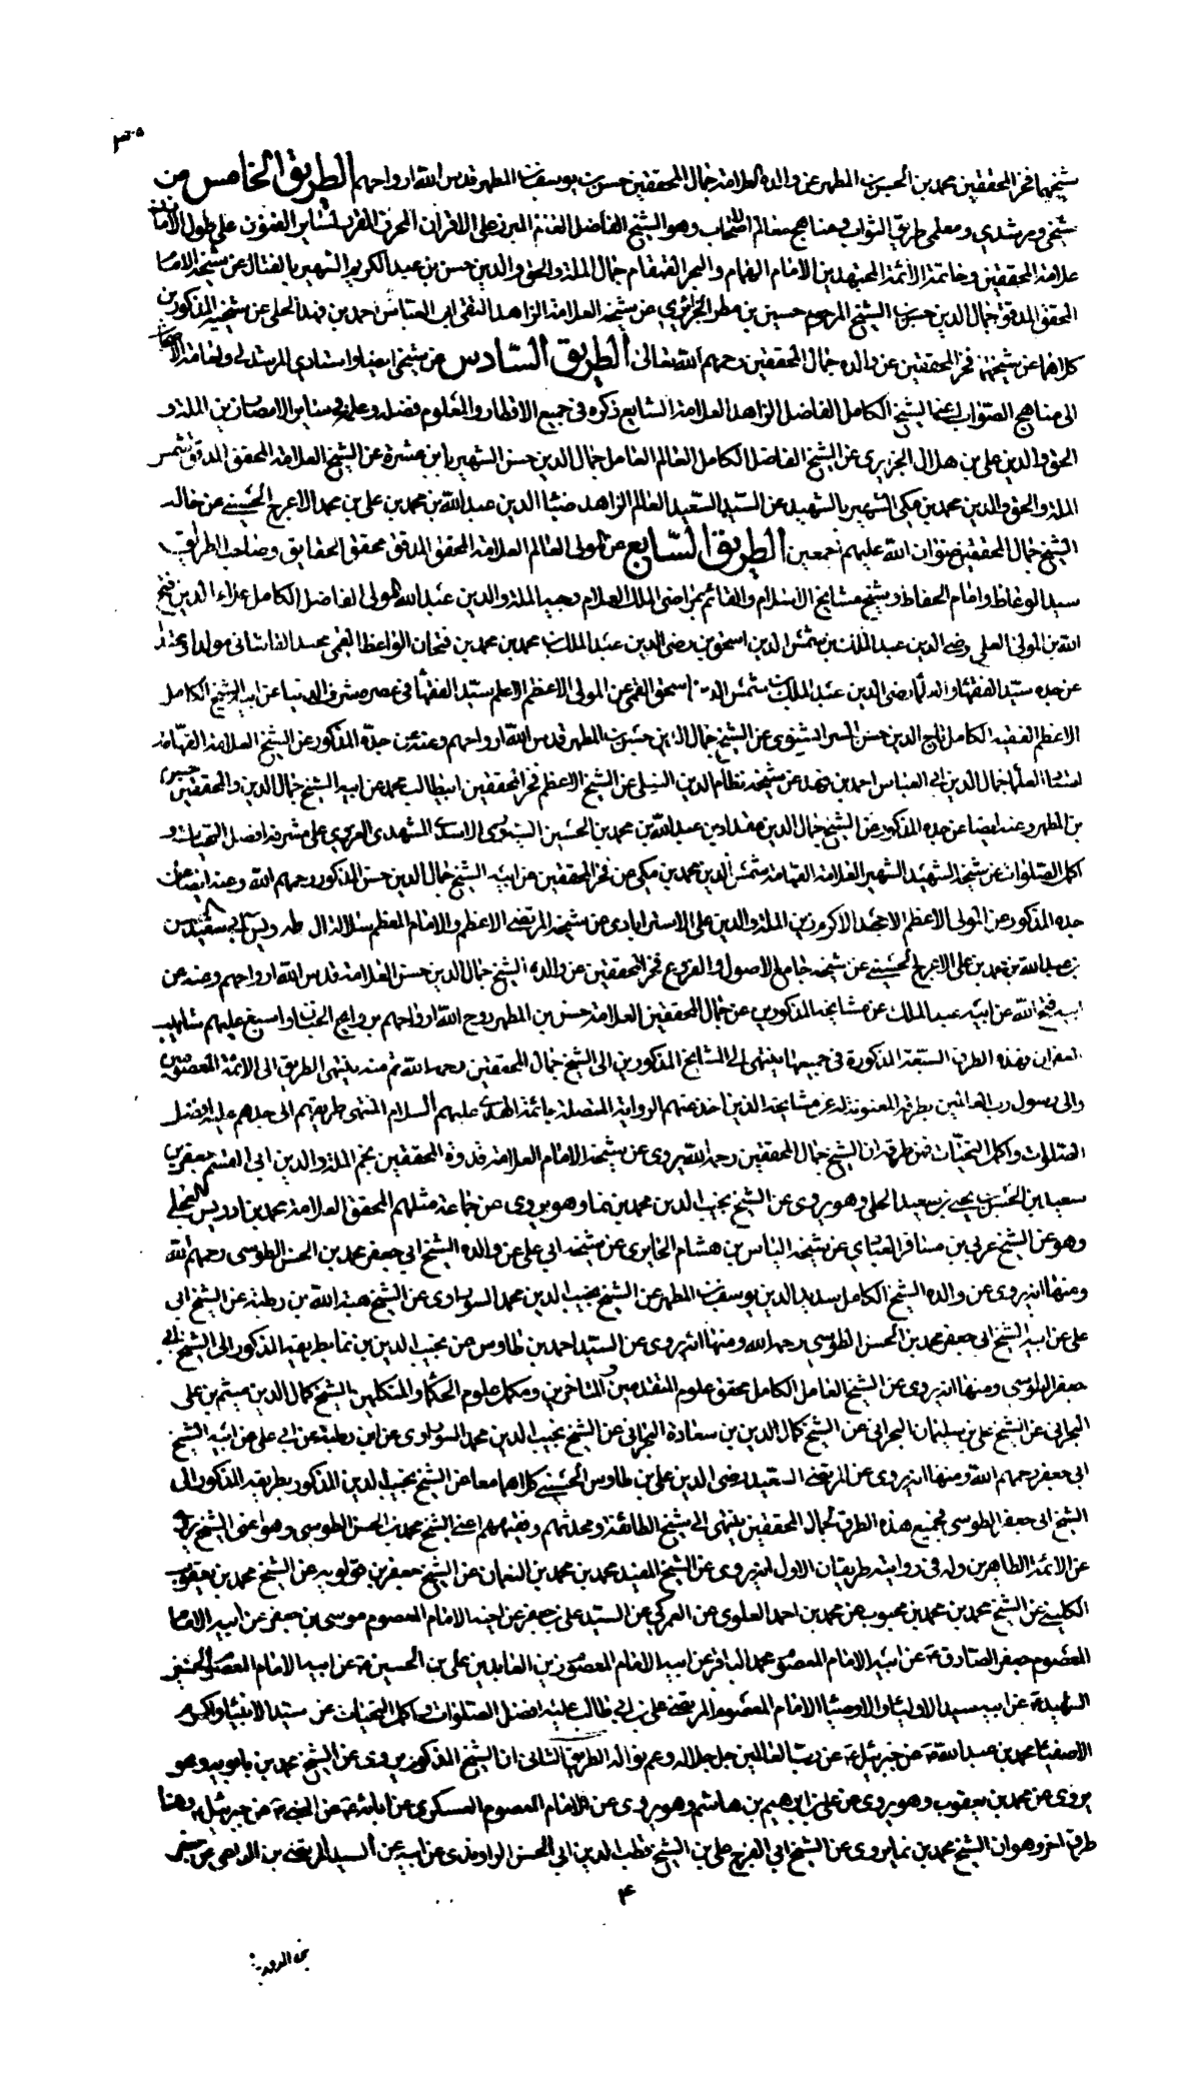 شيخهما فخر المحققين محمد بن الحسن بن المطهر عن والده العلامة جمال المحققين حسن بن يوسف بن المطهر قدس الله ارواحهم الطريق الخامس من
شيخي ومرشدي ومعلمي طريق الثواب ومناهج معالم الاصحاب وهو الشيخ الفاضل المبرز على الاقران المحرز لسائر الفنون على طول الازمان
علامة المحققين وخاتمة الائمة المجتهدين الامام الهمام والبحر القمقام جمال الملة والحق والدين حسن بن عبد الكريم الشهير بالفتال عن شيخه الامام
المحقق المدقق جمال الدين حسن بن الشيخ المرحوم حسين بن مطر الجزائري عن شيخه العلامة الزاهد التقي ابي العباس احمد بن فهد الحلي عن شيخيه المذكورين
كلاهما عن شيخهما فخر المحققين عن والده جمال المحققين رحمهم الله تعالى الطريق السادس عن شيخي ايضا واستادي المرشد لي ولعامة الاصحاب
الى مناهج الصواب اعني الشيخ الكامل الفاضل الزاهد العلامة الشايع ذكره في جميع الاقطار والمعلوم فضله وعلمه في سائر الامصار زين الملة و
الحق والدين علي بن هلال الجزيري عن الشيخ الفاضل الكامل العالم العامل جمال الدين حسن الشهير بابن عشرة عن الشيخ العلامة المحقق المدقق شمس
الملة والحق والدين محمد بن مكي الشهير بالشهيد عن السيد السعيد العالم الزاهد ضياء الدين عبد الله بن محمد بن علي بن محمد الاعرج الحسيني عن خاله
الشيخ جمال المحققين رضوان الله عليهم اجمعين الطريق السابع عن المولى العالم العلامة المحقق المدقق محقق الحقايق وصاحب الطرايق
سيد الوعاظ وامام الحفاظ وشيخ مشايخ الاسلام والقائم بمراضى الملك العلام وجيه الملة والدين عبد الله المولى الفاضل الكامل علاء الدين فتح
الله بن المولى العلي رضي الدين عبد الملك بن شمس الدين اسحق بن رضي الدين عبد الملك بن محمد بن محمد بن فتحان الواعظ القمي محتدا القاساني مولدا
عن جده سيد الفقهاء والعلماء رضي الدين عبد الملك بن شمس الدين اسحق القمي عن المولى الاعظم الاعلم سيد الفقهاء في عصره شرف الدين عن ابيه الشيخ الكامل
الاعظم الفقيه الكامل تاج الدين حسن السرابشنوي عن الشيخ جمال الدين حسن بن المطهر قدس الله ارواحهم وعنه عن جده المذكور عن الشيخ العلامة الفهامة
استاد العلماء جمال الدين ابي العباس احمد بن فهد عن شيخه نظام الدين النيلي عن الشيخ الاعظم فخر المحققين ابي طالب محمد عن ابيه الشيخ جمال الدين والمحققين حسن
بن المطهر وعنه ايضا عن جده المذكور عن الشيخ جمال الدين مقداد بن عبد الله بن محمد بن الحسين السيوري الاسدي المشهدي الغروي على مشرفه افضل التحيات و
اكمل الصلوات عن شيخه الشهيد الشهير العلامة الفهامة شمس الدين محمد بن مكي عن فخر المحققين عن ابيه الشيخ جمال الدين حسن المذكور رحمهم الله وعنه ايضا عن
جده المذكور عن المولى الاعظم الامجد الاكرم زين الملة والدين علي الاسترابادي عن شيخه المرتضى الاعظم والامام المعظم سلالة ال طه ويس ابي سعيد حسن
بن عبد الله بن محمد بن علي الاعرج الحسيني عن شيخه جامع الاصول والفروع فخر المحققين عن والده الشيخ جمال الدين حسن العلامة قدس الله ارواحهم وعنه عن
ابيه فتح الله عن ابيه عبد الملك عن مشايخه المذكورين عن جمال المحققين العلامة حسن بن المطهر روح الله ارواحهم بروايح الجنان واسبغ عليهم شابيب
الغفران بهذه الطرق السبعة المذكورة في جميعها ينتهي الى المشايخ المذكورين الى الشيخ جمال المحققين رحمه الله ثم منه ينتهي الطريق الى الائمة المعصومين
والى رسول رب العالمين بطرقه المعنونة له عن مشايخه الذين اخذ عنهم الرواية المتصلة بائمة الهدى عليهم السلام المنتهى طريقهم الى جدهم عليه افضل
الصلوات واكمل التحيات فمن طرقه ان الشيخ جمال المحققين رحمه الله يروي عن شيخه الامام العلامة قدوة المحققين نجم الملة والدين ابي القسم جعفر بن
سعيد بن الحسن بن يحيى بن سعيد الحلي وهو يروي عن الشيخ نجيب الدين محمد بن نما وهو يروي عن جماعة مثلهم المحقق العلامة محمد بن ادريس العجلي
وهو عن الشيخ عربي بن مسافر العبادي عن شيخه الياس بن هشام الحايري عن شيخه ابي علي عن والده الشيخ ابي جعفر محمد بن الحسن الطوسي رحمهم الله
ومنها انه يروي عن والده الشيخ الكامل سديد الدين يوسف بن المطهر عن الشيخ نجيب الدين محمد السوراوي عن الشيخ هبة الله بن رطبة عن الشيخ ابي
علي عن ابيه الشيخ ابي جعفر محمد بن الحسن الطوسي رحمه الله ومنها انه يروي عن السيد احمد بن طاوس عن نجيب الدين بن نما بطريقه المذكور الى الشيخ ابي
جعفر الطوسي ومنها انه يروي عن الشيخ العامل الكامل محقق علوم المتقدمين والمتاخرين ومكمل علوم الحكماء والمتكلمين الشيخ كمال الدين ميثم بن علي
البحراني عن الشيخ علي بن سليمان البحراني عن الشيخ كمال الدين بن سعادة البحراني عن الشيخ نجيب الدين محمد السوراوي عن ابن رطبة عن ابي علي عن ابيه الشيخ
ابي جعفر رحمهم الله ومنها انه يروي عن المرتضى السعيد رضي الدين علي بن طاوس الحسيني كلاهما معا عن الشيخ نجيب الدين المذكور بطريقه المذكور الى
الشيخ ابي جعفر الطوسي فجميع هذه الطرق لجمال المحققين ينتهي الى شيخ الطائفة ومحدثهم وفقيههم اعني الشيخ محمد بن الحسن الطوسي وهو اعني الشيخ يروي
عن الائمة الطاهرين وله في روايته طريقان الاول انه يروي عن الشيخ المفيد محمد بن محمد بن النعمان عن الشيخ جعفر بن قولويه عن الشيخ محمد بن يعقوب
الكليني عن الشيخ محمد بن محمد بن محبوب عن محمد بن احمد العلوي عن العمركي عن السيد علي بن جعفر عن اخيه الامام المعصوم موسى بن جعفر عن ابيه الامام
المعصوم جعفر الصادق ع عن ابيه الامام المعصوم محمد الباقر عن ابيه الامام المعصوم زين العابدين علي بن الحسين ع عن ابيه الامام المعصوم الحسين
الشهيد ع عن ابيه سيد الاولياء والاوصياء الامام المعصوم المرتضى علي بن ابي طالب عليه افضل الصلوات واكمل التحيات عن سيد الانبياء واكرم
الاصفياء محمد بن عبد الله ص عن جبرئيل ع عن رب العالمين جل جلاله وعم نواله الطريق الثاني ان الشيخ المذكور يروي عن الشيخ محمد بن بابويه وهو
يروي عن محمد بن يعقوب وهو يروي عن علي بن ابرهيم بن هاشم وهو يروي عن الامام المعصوم العسكري عن ابائه ع عن النبي ص عن جبرئيل ع وهنا
طرق اخر وهو ان الشيخ محمد بن نما يروي عن الشيخ ابي الفرج علي بن الشيخ قطب الدين ابي الحسن الراوندي عن ابيه عن السيد المرتضى بن الداعي عن جعفر
۴